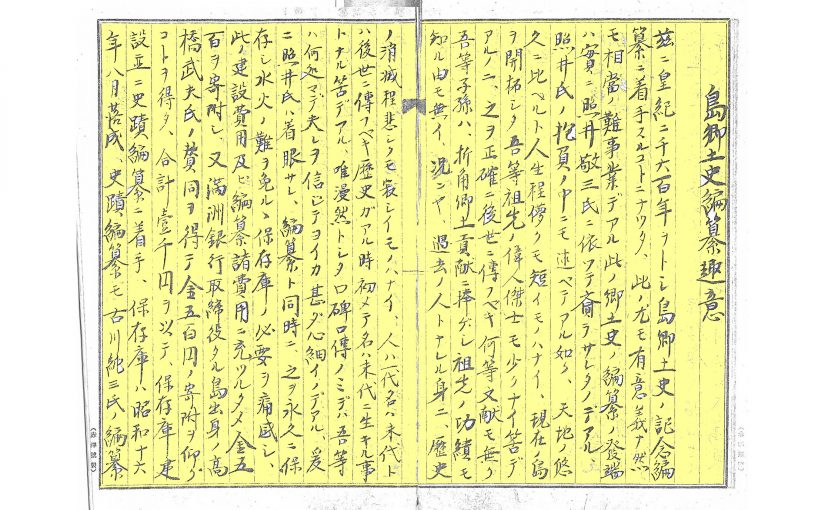 島郷土史編纂趣意
茲ニ皇紀二千六百年ヲトシ島郷土史ノ記念編
纂ニ着手スルコトニナツタ、此ノ尤モ有意義ナ然
モ相當ノ難事業デアル此ノ郷土史ノ編纂ノ發端
ハ實ニ照井敬三氏ニ依ツテ齎ラサレタノデアル
照井氏ノ抱負ノ中ニモ述ベテアル如ク、天地ノ悠
久ニ比ベルト人生程儚クモ短イモノハナイ 現在ノ島
ヲ開拓シタ吾等祖先ノ偉人傑士モ少クナイ筈デ
アルノニ、之ヲ正確ニ後世ニ傳フベキ何等文献モ無ク
吾等子孫ハ、折角郷土貢献ニ捧ゲシ祖先ノ功績モ
知ル由モ無イ、況ンヤ、過去ノ人トナレル身ニ、歴史
ノ消滅程悲シクモ寂シイモノハナイ 人ハ一代名ハ末代ト
ハ後世ニ傳フベキ歴史ガアル時初メテ名ハ末代ニ生キル事
トナル筈デアル、唯漫然トシタ口碑口傳ノミデハ吾等
ハ何処マデ夫レヲ信ジテヨイカ甚ダ心細イノデアル、爰
ニ照井氏ハ着眼サレ、編纂ト同時ニ、之ヲ永久ニ保
存シ水火ノ難ヲ免ルヽ保存庫ノ必要ヲ痛感シ、
此ノ建設費用及ビ編纂諸費用ニ充ツルタメ金五
百円ヲ寄附シ、又満洲銀行取締役タル島出身高
橋武夫氏ノ賛同ヲ得テ金五百円ノ寄附ヲ仰グ
コトヲ得タ、合計壹千円ヲ以テ、保存庫建
設並ニ史蹟編纂ニ着手、保存庫ハ昭和十六
年八月落成、史蹟編纂モ古川純三氏ノ編纂